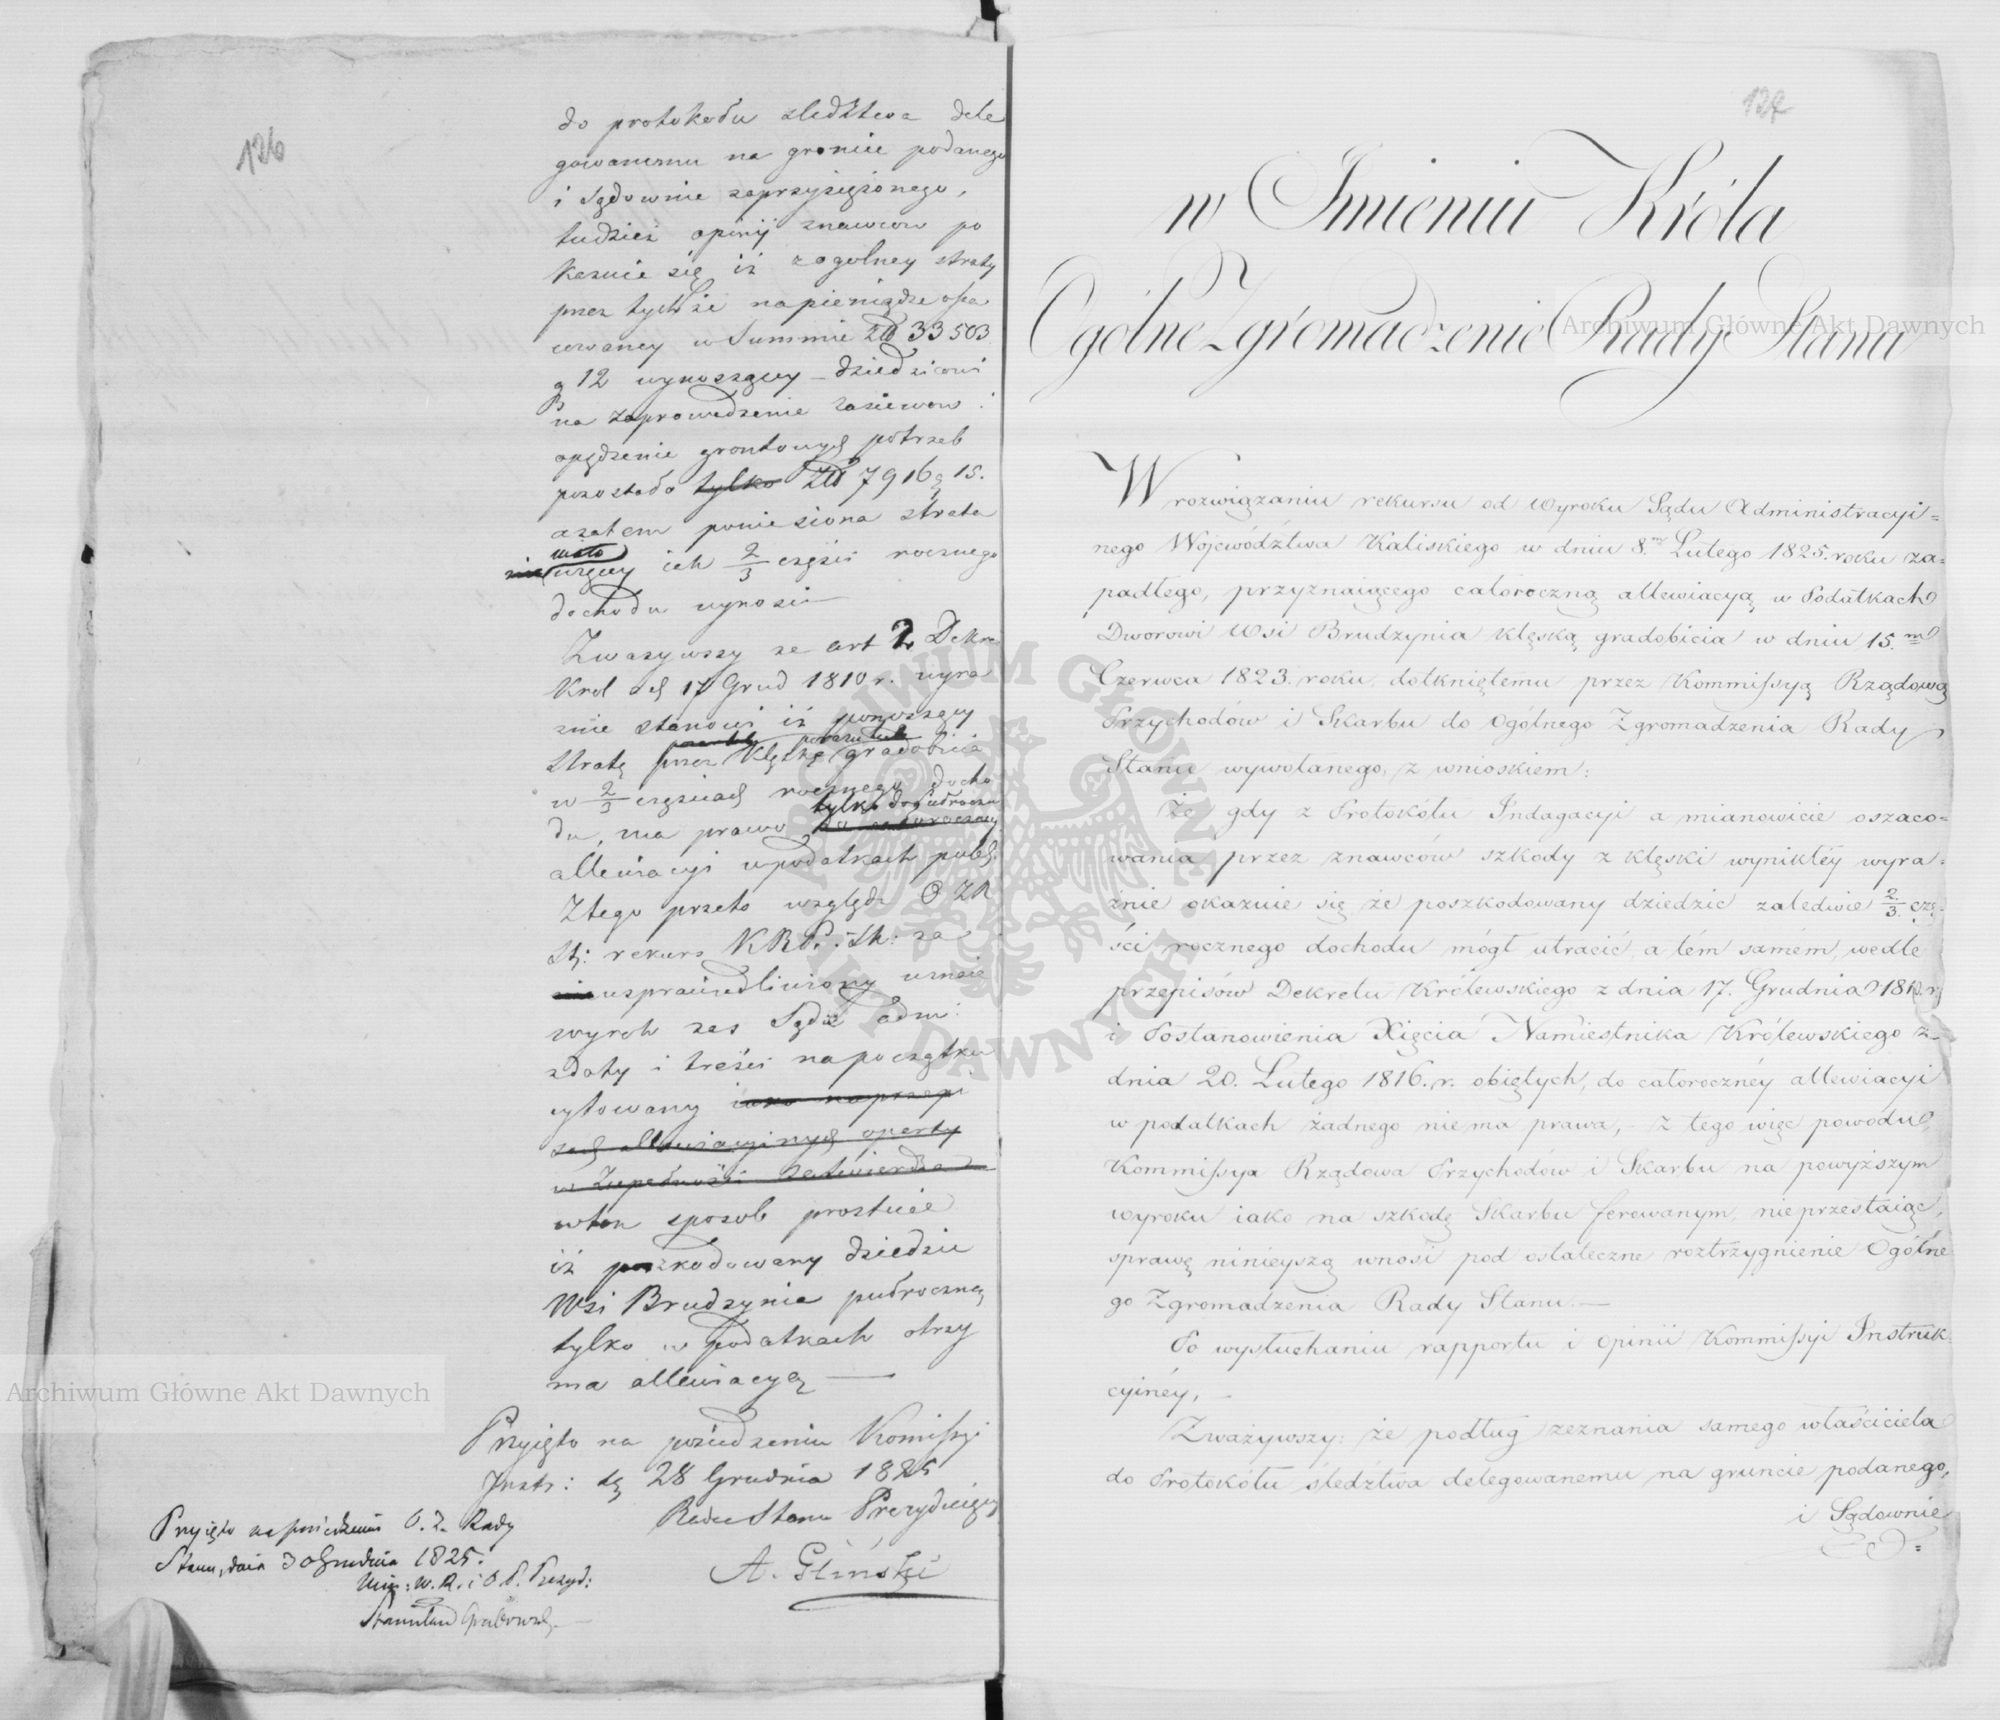 126
do protokołu sledztwa dele
gowanemu na gróncie podanego
i Sądownie zaprzysiężonego,
tudzież opinij znawcow po
kazuie się iż zogolney straty
przez tychże napieniądze osza
cowaney w Summie Złł 33503
g 12 wynoszącey – dziedzicowi
na zaprowadzenie zasiewow i
opędzenie grontowych potrzeb
pozostało tylko Złł 7916 g 15.
azatem poniesiona strata
mało
nie wręcey iak 2/3 części rocznego
dochodu wynosi —
Zważywszy ze art 2 Dekre
Krol z d 17 Grud 1810 r. wyra
znie stanowi iż ponoszący
stratę przez klęskę gradobicia
w 2/3 częściach rocznego docho
tylko do półroczn
du, ma prawo do całoroczney
allewiacyi w podatkach publ.
Ztego przeto względu O Z R
St: rekurs K R P. i Sk: za
nie usprawiedliwiony uznaie
wyrok zas Sądu adm:
zdaty i treści na początku
cytowany iako na przepi
sach allewiacyinych oparty
w Zupełności zatwierdza
w ten sposob prostuie
iż poszkodowany dziedzic
Wsi Brudzynia pułroczną
tylko w podatkach otrzy
ma allewiacyą —
Przyięto na posiedzeniu Komissyi
Instr: dę 28 Grudnia 1825
Radca Stanu Prezyduiący
A. Gliński
Przyięto na posiedzeniu O. Z. Rady
Stanu, dnia 30 Grudnia 1825.
Min: W. R. i O. P. Prezyd:
Stanisław Grabowski
127
w Imieniu Króla
Ogólne Zgromadzenie Rady Stanu
W rozwiązaniu rekursu od Wyroku Sądu Administracyi=
nego Wojewódźtwa Kaliskiego w dniu 8.ym Lutego 1825. roku za=
padłego, przyznaiącego całoroczną allewiacyą w Podatkach
Dworowi Wsi Brudzynia klęską gradobicia w dniu 15.m
Czerwca 1823. roku, dotkniętemu przez Kommissyą Rządową
Przychodów i Skarbu do Ogólnego Zgromadzenia Rady
Stanu wywołanego, z wnioskiem:
Że gdy z Protokółu Indagacyi a mianowicie oszaco=
wania przez znawców szkody z klęski wynikłéy wyra=
źnie okazuie się że poszkodowany dziedzic zaledwie 2/3 czę=
ści rocznego dochodu mógł utracić, a tém samém, wedle
przepisów Dekretu Królewskiego z dnia 17. Grudnia 1810. r.
i Postanowienia Xięcia Namiestnika Królewskiego z
dnia 20. Lutego 1816. r. obiętych, do całorocznéy allewiacyi
w podatkach żadnego niema prawa, z tego więc powodu,
Kommissya Rządowa Przychodów i Skarbu na powyższym
wyroku iako na szkodę Skarbu ferowanym, nieprzestaiąc,
sprawę ninieyszą wnosi pod ostateczne roztrzygnienie Ogólne
go Zgromadzenia Rady Stanu. —
Po wysłuchaniu rapportu i opinii Kommissyi Instruk=
cyinéy, —
Zważywszy: że podług zeznania samego właściciela
do Protokółu śledztwa delegowanemu na gruncie podanego,
i Sądownie